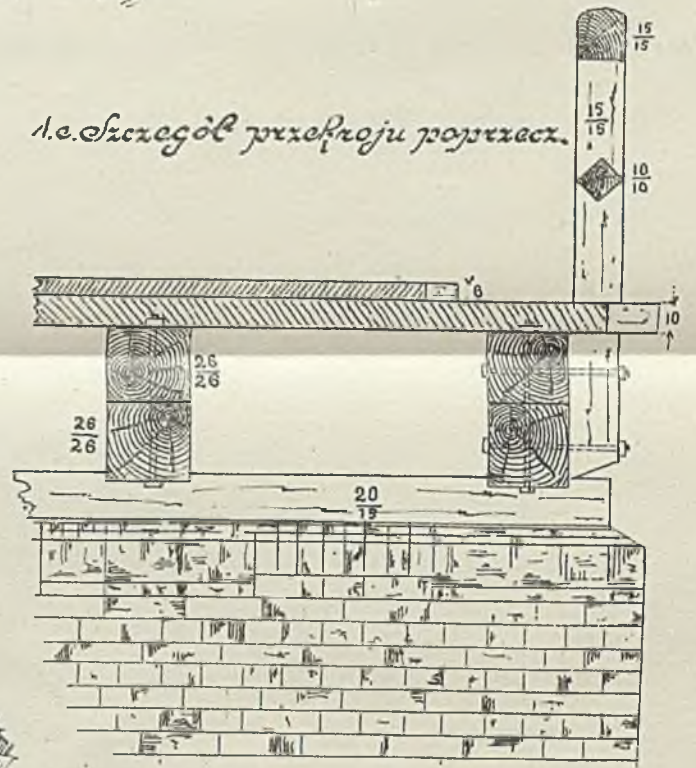 15/15
1.c. Szczegół przekroju poprzecz.
15/15
10/10
6
10
26/26
26/26
20/19